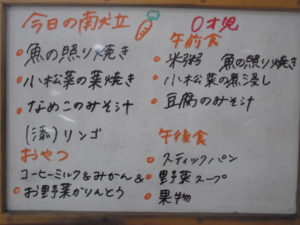 今日の献立
魚の照り焼き
小松菜の菜焼き
なめこのみそ汁
(添)リンゴ
おやつ
コーヒーミルク&みかん&
お野菜かりんとう
0才児
午前食
米粥 魚の照り焼き
小松菜の煮浸し
豆腐のみそ汁
午後食
スティックパン
野菜スープ
果物